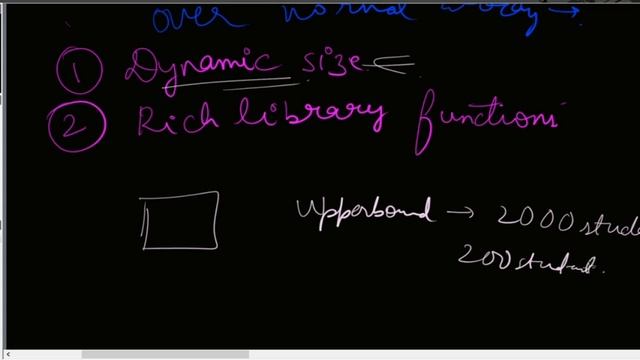 over normal array →
① Dynamic size ⇐
② Rich library functions
Upperbound → 2000 stude
200 student.